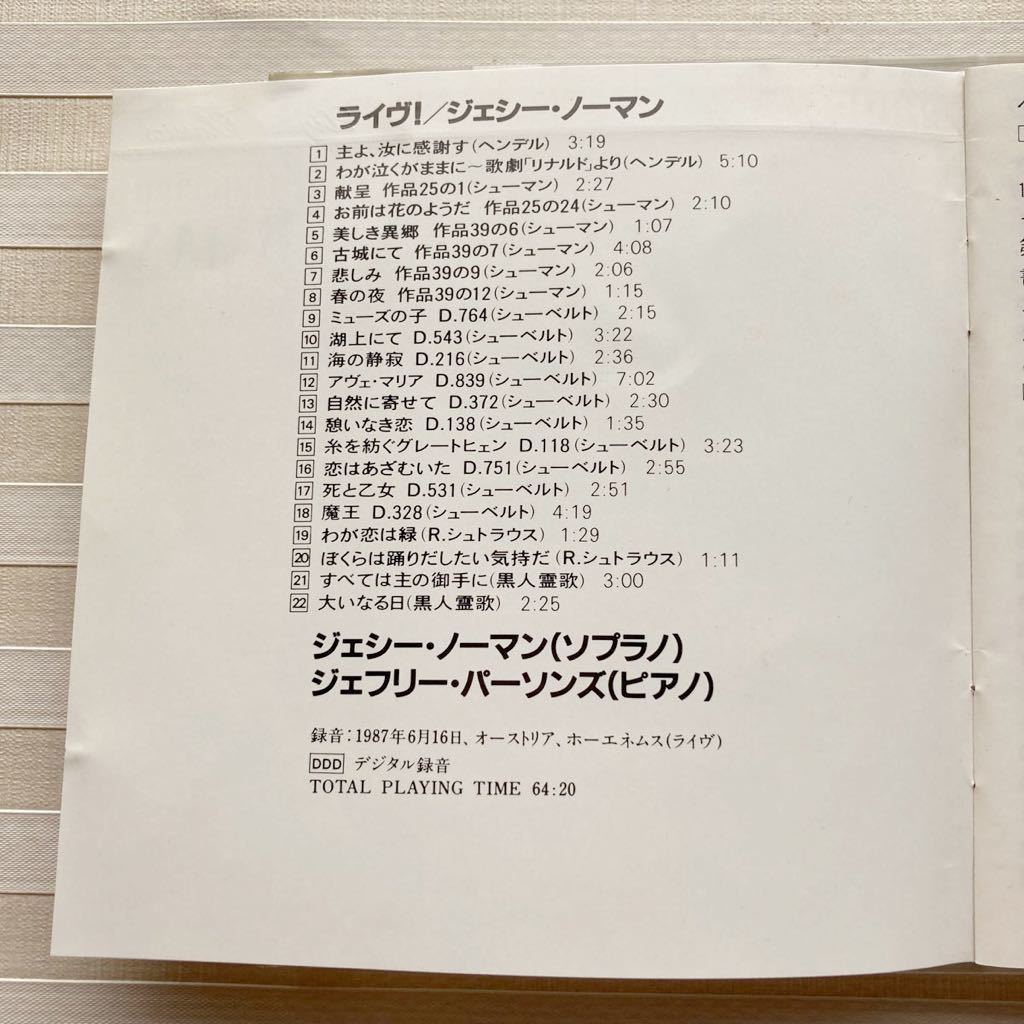 ライヴ!/ジェシー・ノーマン
1 主よ、汝に感謝す(ヘンデル) 3:19
2 わが泣くがままに〜歌劇「リナルド」より(ヘンデル) 5:10
3 献呈 作品25の1(シューマン) 2:27
4 お前は花のようだ 作品25の24(シューマン) 2:10
5 美しき異郷 作品39の6(シューマン) 1:07
6 古城にて 作品39の7(シューマン) 4:08
7 悲しみ 作品39の9(シューマン) 2:06
8 春の夜 作品39の12(シューマン) 1:15
9 ミューズの子 D.764(シューベルト) 2:15
10 湖上にて D.543(シューベルト) 3:22
11 海の静寂 D.216(シューベルト) 2:36
12 アヴェ・マリア D.839(シューベルト) 7:02
13 自然に寄せて D.372(シューベルト) 2:30
14 憩いなき恋 D.138(シューベルト) 1:35
15 糸を紡ぐグレートヒェン D.118(シューベルト) 3:23
16 恋はあざむいた D.751(シューベルト) 2:55
17 死と乙女 D.531(シューベルト) 2:51
18 魔王 D.328(シューベルト) 4:19
19 わが恋は緑(R.シュトラウス) 1:29
20 ぼくらは踊りだしたい気持だ(R.シュトラウス) 1:11
21 すべては主の御手に(黒人霊歌) 3:00
22 大いなる日(黒人霊歌) 2:25
ジェシー・ノーマン(ソプラノ)
ジェフリー・パーソンズ(ピアノ)
録音:1987年6月16日、オーストリア、ホーエネムス(ライヴ)
DDD デジタル録音
TOTAL PLAYING TIME 64:20